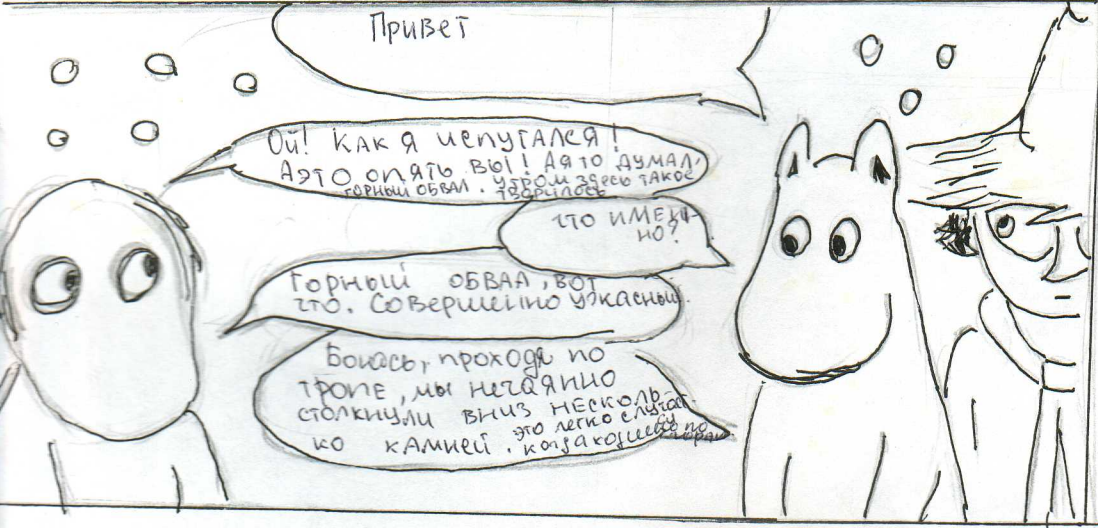 Привет
Ой! Как я испугался!
А это опять вы! А я то думал,
горный обвал. Утром здесь такое
творилось
Что имен-
но?
Горный обвал, вот
что. Совершенно ужасный.
Боюсь, проходя по
тропе, мы нечаянно
столкнули вниз несколь-
ко камней. это легко случает-
ся
когда ходишь по
горам